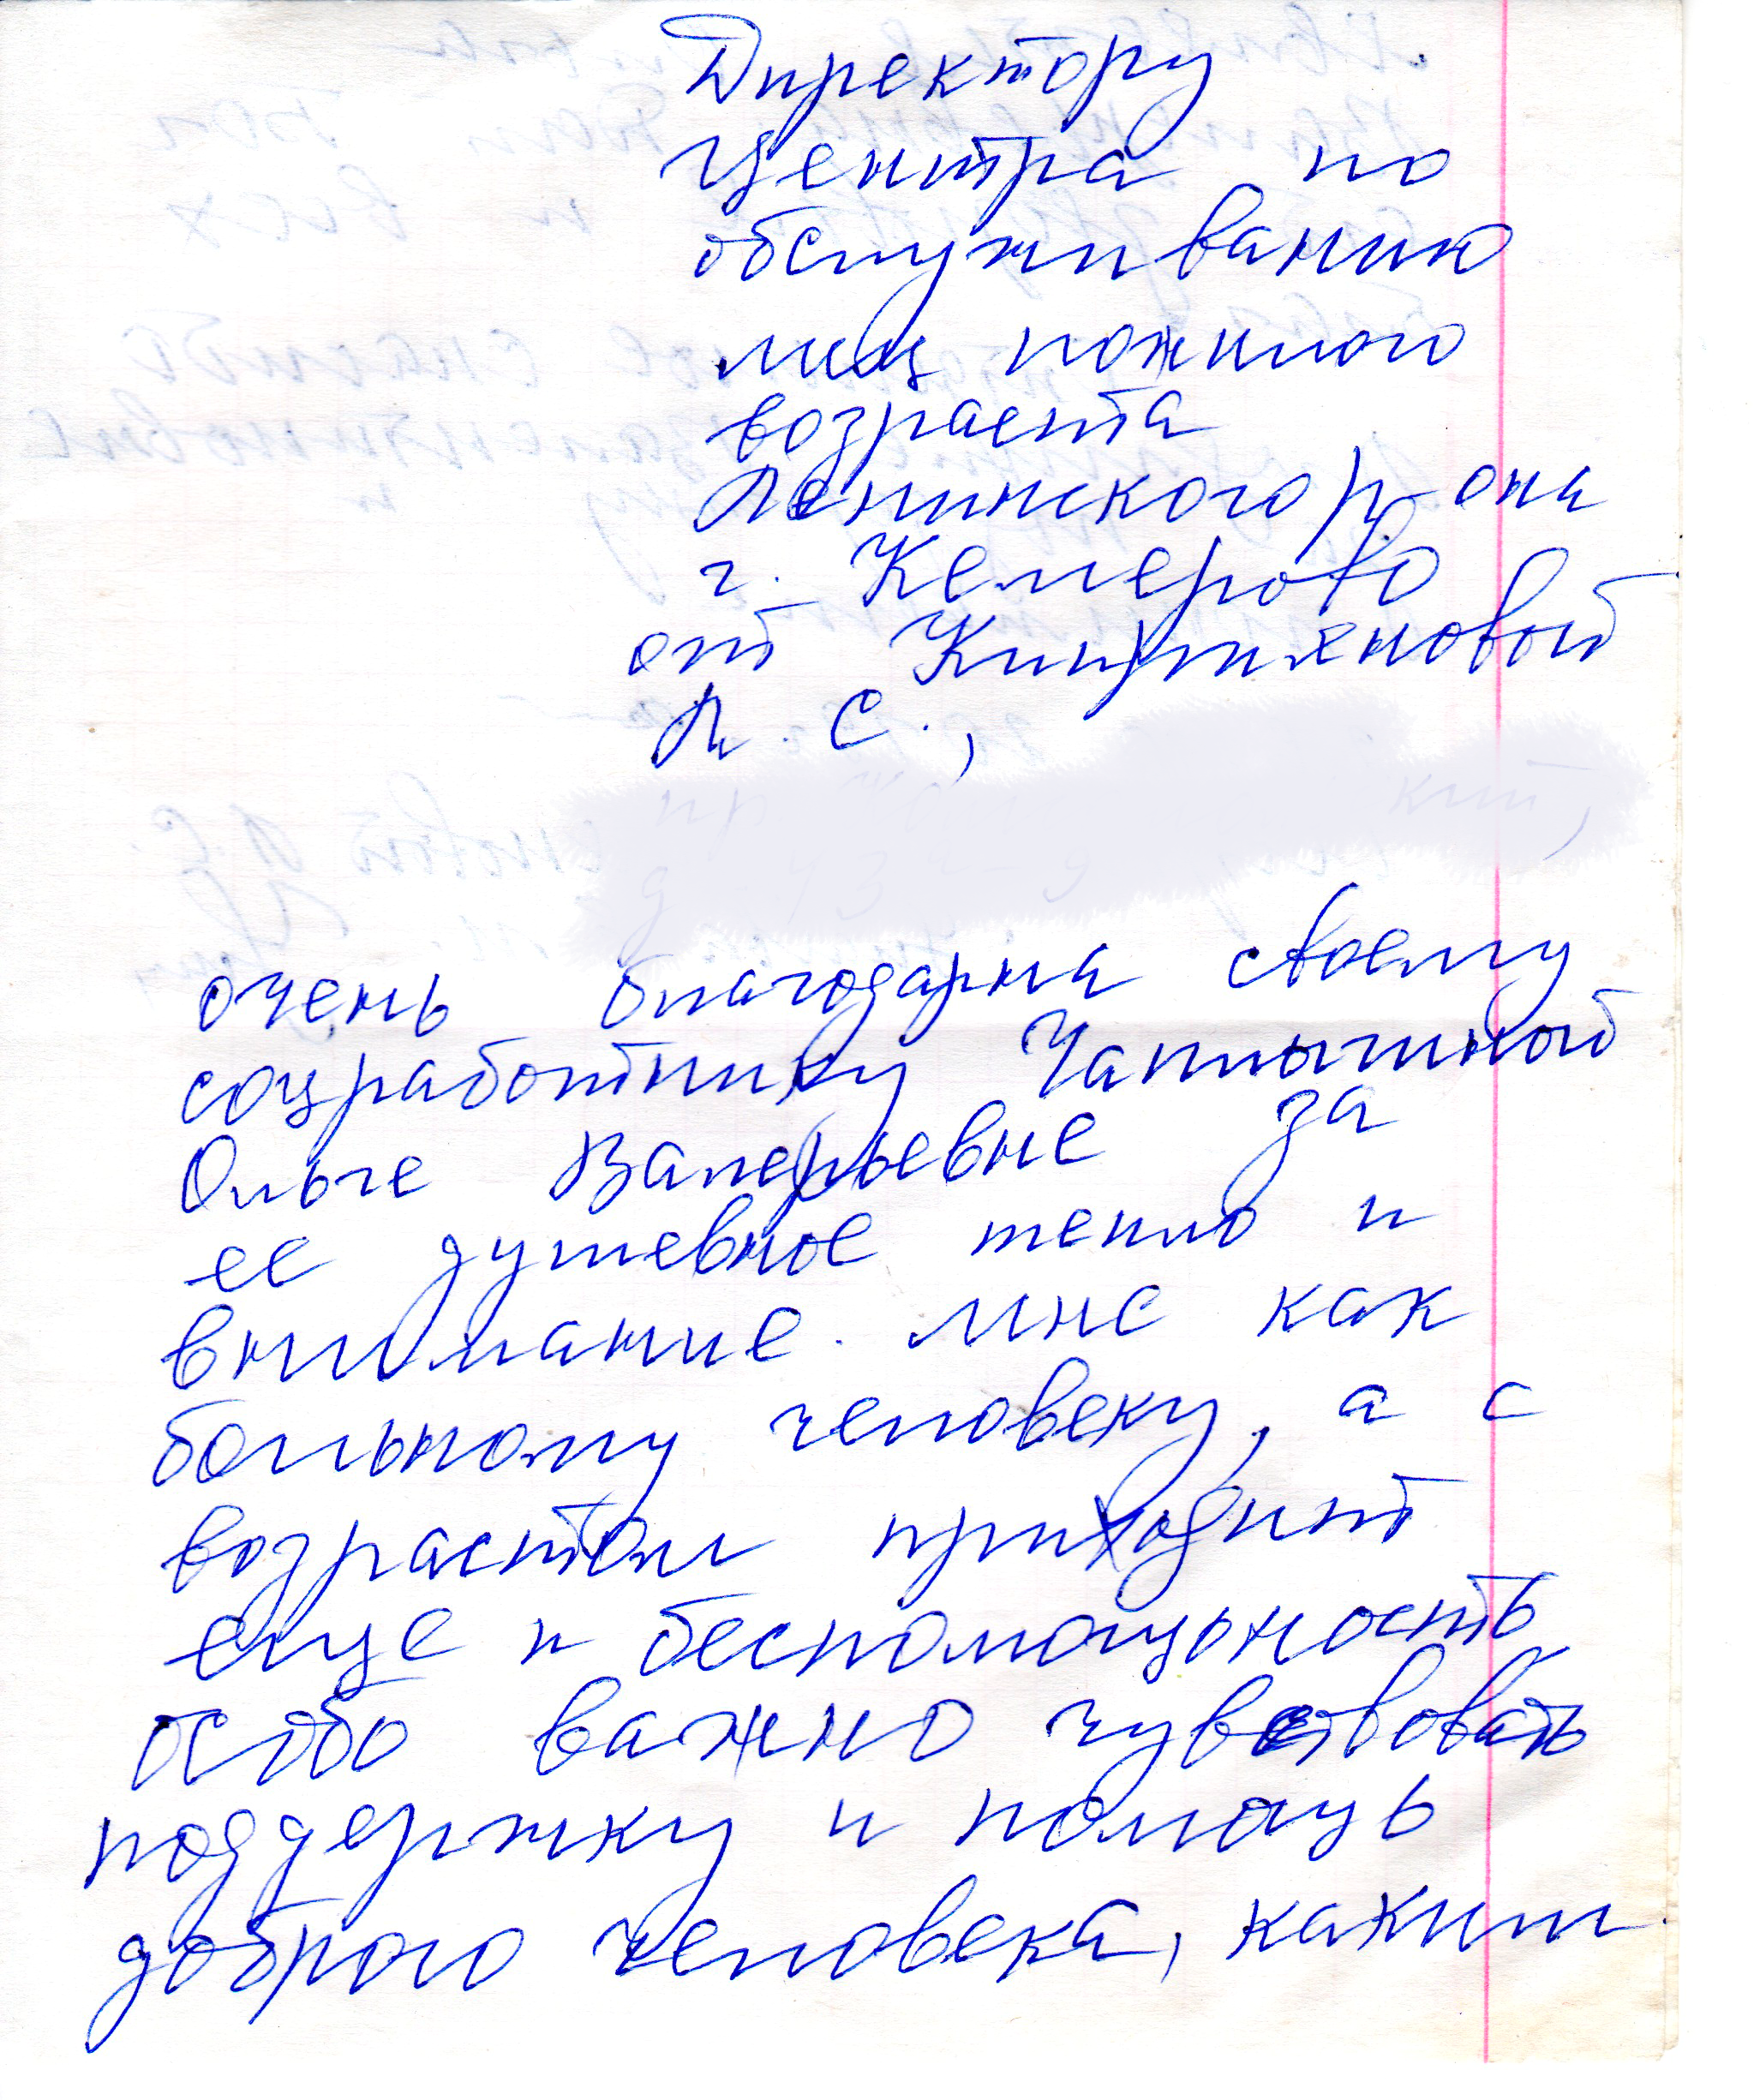 Директору
Центра по
обслуживанию
лиц пожилого
возраста
Ленинского р-она
г. Кемерово
от
Л. С.,
очень благодарна своему
соцработнику
Ольге Валерьевне за
ее душевное тепло и
внимание. мне как
больному человеку, а с
возрастом приходит
еще и беспомощьность
особо важно чувствовать
поддержку и помощь
доброго человека, каким